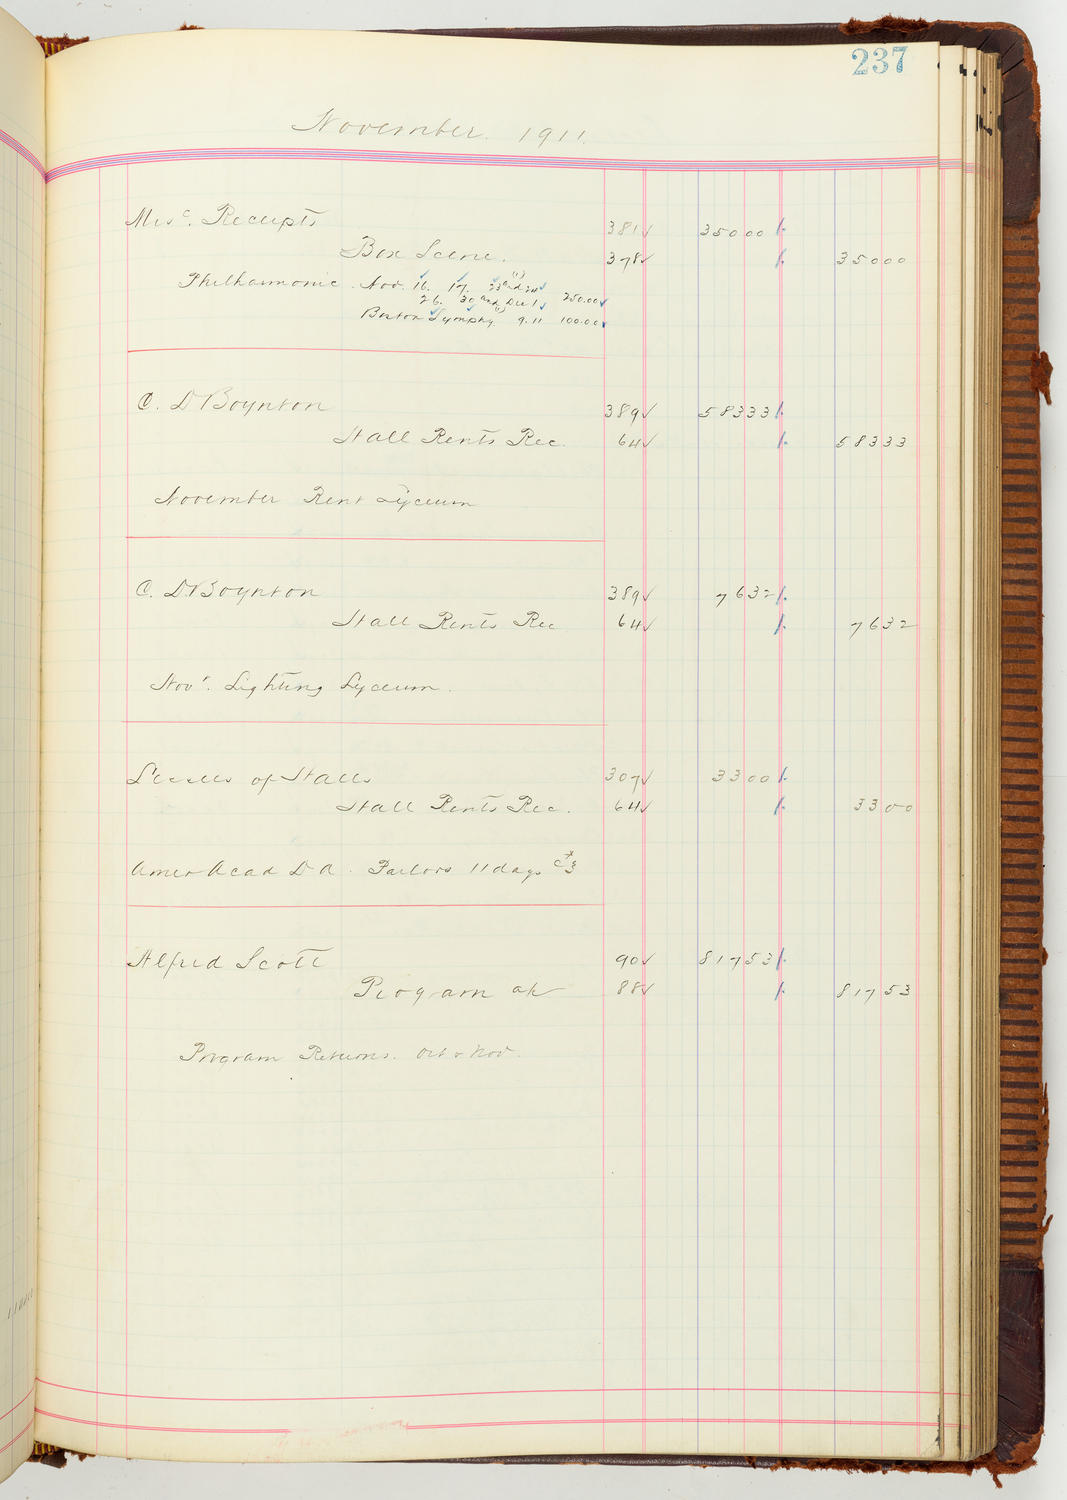 237
November. 1911.
Misc. Receipts 381 ✓ 350 00
Box Scene. 378 ✓ 350 00
Philharmonic. Nov. 16. 17. 23 and 24
26. 30 and Dec 1 250.00
Boston Symphy. 9. 11 100.00
C. D Boynton 389 ✓ 583 33
Hall Rents Rec. 64 ✓ 583 33
November Rent Lyceum
C. D. Boynton 389 ✓ 76 32
Hall Rents Rec 64 ✓ 76 32
Novr. Lighting Lyceum.
Lessees of Halls 307 ✓ 33 00
Hall Rents Rec. 64 ✓ 33 00
Amer Acad D A. Parlors 11 days
Alfred Scott 90 ✓ 817 53
Program a/c 88 ✓ 817 53
Program Returns. Oct & Nov.